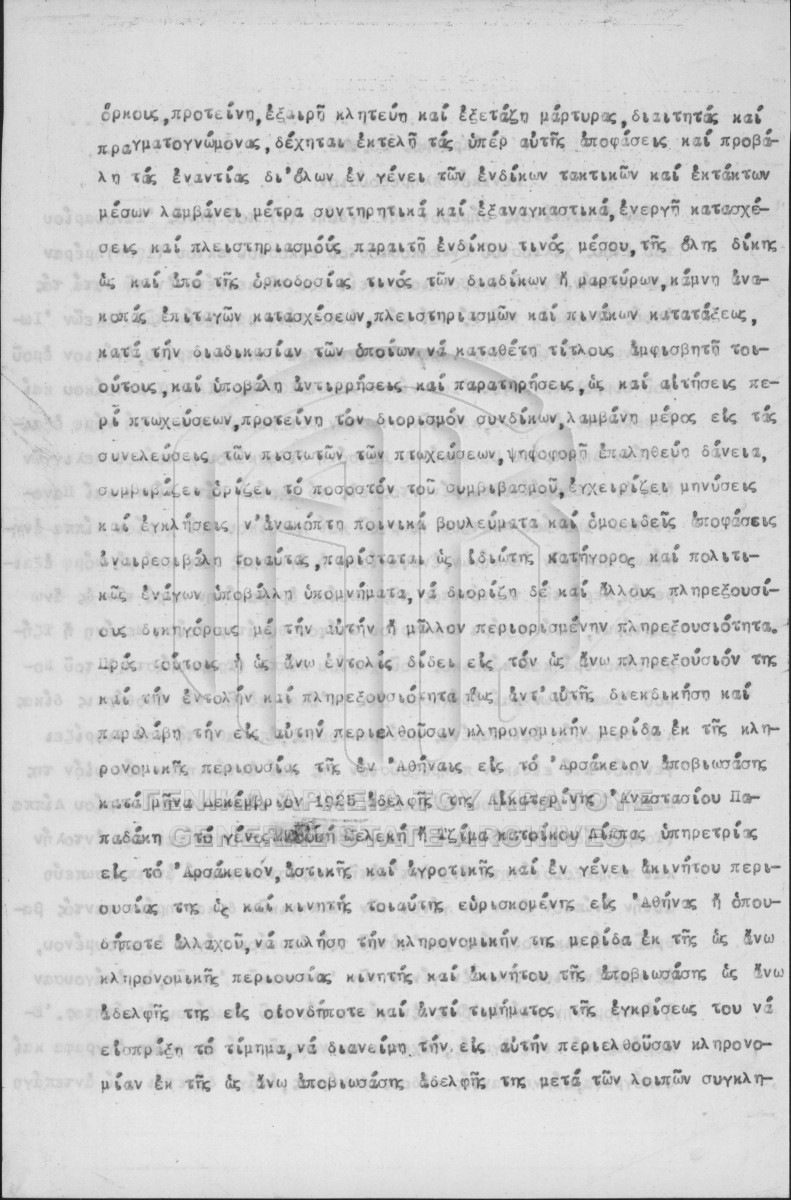 ὅρκους,προτείνῃ,ἐξαιρῇ κλητεύῃ καί ἐξετάζῃ μάρτυρας,διαιτητάς καί
πραγματογνώμονας,δέχηται ἐκτελῇ τάς ὑπέρ αὐτῆς ἀποφάσεις καί προβά-
λῃ τάς ἐναντίας δι'ὅλων ἐν γένει τῶν ἐνδίκων τακτικῶν καί ἐκτάκτων
μέσων λαμβάνει μέτρα συντηρητικά καί ἐξαναγκαστικά,ἐνεργῇ κατασχέ-
σεις καί πλειστηριασμούς παραιτῇ ἐνδίκου τινός μέσου,τῆς ὅλης δίκης
ὡς καί ἀπό τῆς ὁρκοδοσίας τινός τῶν διαδίκων ἤ μαρτύρων,κάμνῃ ἀνα-
κοπάς ἐπιταγῶν κατασχέσεων,πλειστηριασμῶν καί πινάκων κατατάξεως,
κατά τήν διαδικασίαν τῶν ὁποίων νά καταθέτῃ τίτλους ἀμφισβητῇ τοι-
ούτους,καί ὑποβάλῃ ἀντιρρήσεις καί παρατηρήσεις,ὡς καί αἰτήσεις πε-
ρί πτωχεύσεων,προτείνῃ τόν διορισμόν συνδίκων,λαμβάνῃ μέρος εἰς τάς
συνελεύσεις τῶν πιστωτῶν τῶν πτωχεύσεων,ψηφοφορῇ ἐπαληθεύῃ δάνεια,
συμβιβάζει ὁρίζει τό ποσοστόν τοῦ συμβιβασμοῦ,ἐγχειρίζει μηνύσεις
καί ἐγκλήσεις ν'ἀνακόπτῃ ποινικά βουλεύματα καί ὁμοειδεῖς ἀποφάσεις
ἀναιρεσιβάλῃ τοιαύτας,παρίσταται ὡς ἰδιώτης κατήγορος καί πολιτι-
κῶς ἐνάγων ὑποβάλλῃ ὑπομνήματα,νά διορίζῃ δέ καί ἄλλους πληρεξουσί-
ους δικηγόρους μέ τήν αὐτήν ἤ μᾶλλον περιορισμένην πληρεξουσιότητα.
Πρός τούτοις ἡ ὡς ἄνω ἐντολίς δίδει εἰς τόν ὡς ἄνω πληρεξούσιόν της
καί τήν ἐντολήν καί πληρεξουσιότητα ὅπως ἀντ'αὐτῆς διεκδικήσῃ καί
παραλάβῃ τήν εἰς αὐτήν περιελθοῦσαν κληρονομικήν μερίδα ἐκ τῆς κλη-
ρονομικῆς περιουσίας τῆς ἐν Ἀθήναις εἰς τό Ἀρσάκειον ἀποβιωσάσης
κατά μῆνα Δεκέμβριον 1925 ἀδελφῆς της Αἰκατερίνης Ἀναστασίου Πα-
παδάκη τό γένος Σελεκῆ ἤ Τζίμα κατοίκου Αἴππας ὑπηρετρίας
εἰς τό Ἀρσάκειον,ἀστικῆς καί ἀγροτικῆς καί ἐν γένει ἀκινήτου περι-
ουσίας της ὡς καί κινητῆς τοιαύτης εὑρισκομένης εἰς Ἀθήνας ἤ ὁπου-
δήποτε ἀλλαχοῦ,νά πωλήσῃ τήν κληρονομικήν της μερίδα ἐκ τῆς ὡς ἄνω
κληρονομικῆς περιουσίας κινητῆς καί ἀκινήτου τῆς ἀποβιωσάσης ὡς ἄνω
ἀδελφῆς της εἰς οἱονδήποτε καί ἀντί τιμήματος τῆς ἐγκρίσεως του νά
εἰσπράξῃ τό τίμημα,νά διανείμῃ τήν εἰς αὐτήν περιελθοῦσαν κληρονο-
μίαν ἐκ τῆς ὡς ἄνω ἀποβιωσάσης ἀδελφῆς της μετά τῶν λοιπῶν συγκλη-
ΓΕΝΙΚΑ ΑΡΧΕΙΑ ΤΟΥ ΚΡΑΤΟΥΣ
GENERAL STATE ARCHIVES